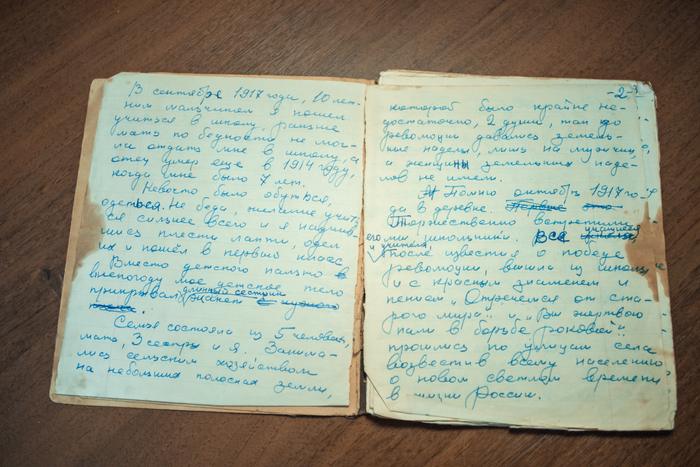 В сентябре 1917 года, 10 лет-
ним мальчиком я пошел
учиться в школу, раньше
мать по бедности не мог-
ла отдать мне в школу, а
отец умер еще в 1914 году,
когда мне было 7 лет.
Невочто было обуться,
одеться. Не беда, желание учить
ся сильнее всего и я научив-
шись плести лапти, одел
их и пошёл в первый класс.
Вместо детского пальто в
внепогоды мое детское тело
длинный сестрин
прикрывал
Семья состояла из 5 человек,
мать, 3 сестры и я. Занима-
лись сельским хозяйством
на небольших полосках земли,
-2-
которой было крайне не-
достаточно, 2 души, так до
революции давались земель-
ные наделы лишь на мужчин,
а женщины земельных наде-
лов не имели.
Помню октябрь 1917 го-
да в деревне.
Торжественно встретили
его мы, школьники. Все учащиеся
и учителя
после известия о победе
революции, вышли из школы
и с красным знаменем и
пением "Отречемся от ста-
рого мира" и "Вы жертвою
пали в борьбе роковой"
прошлись по улицам села
возвестив всему населению
о новом светлом времени
в жизни России.